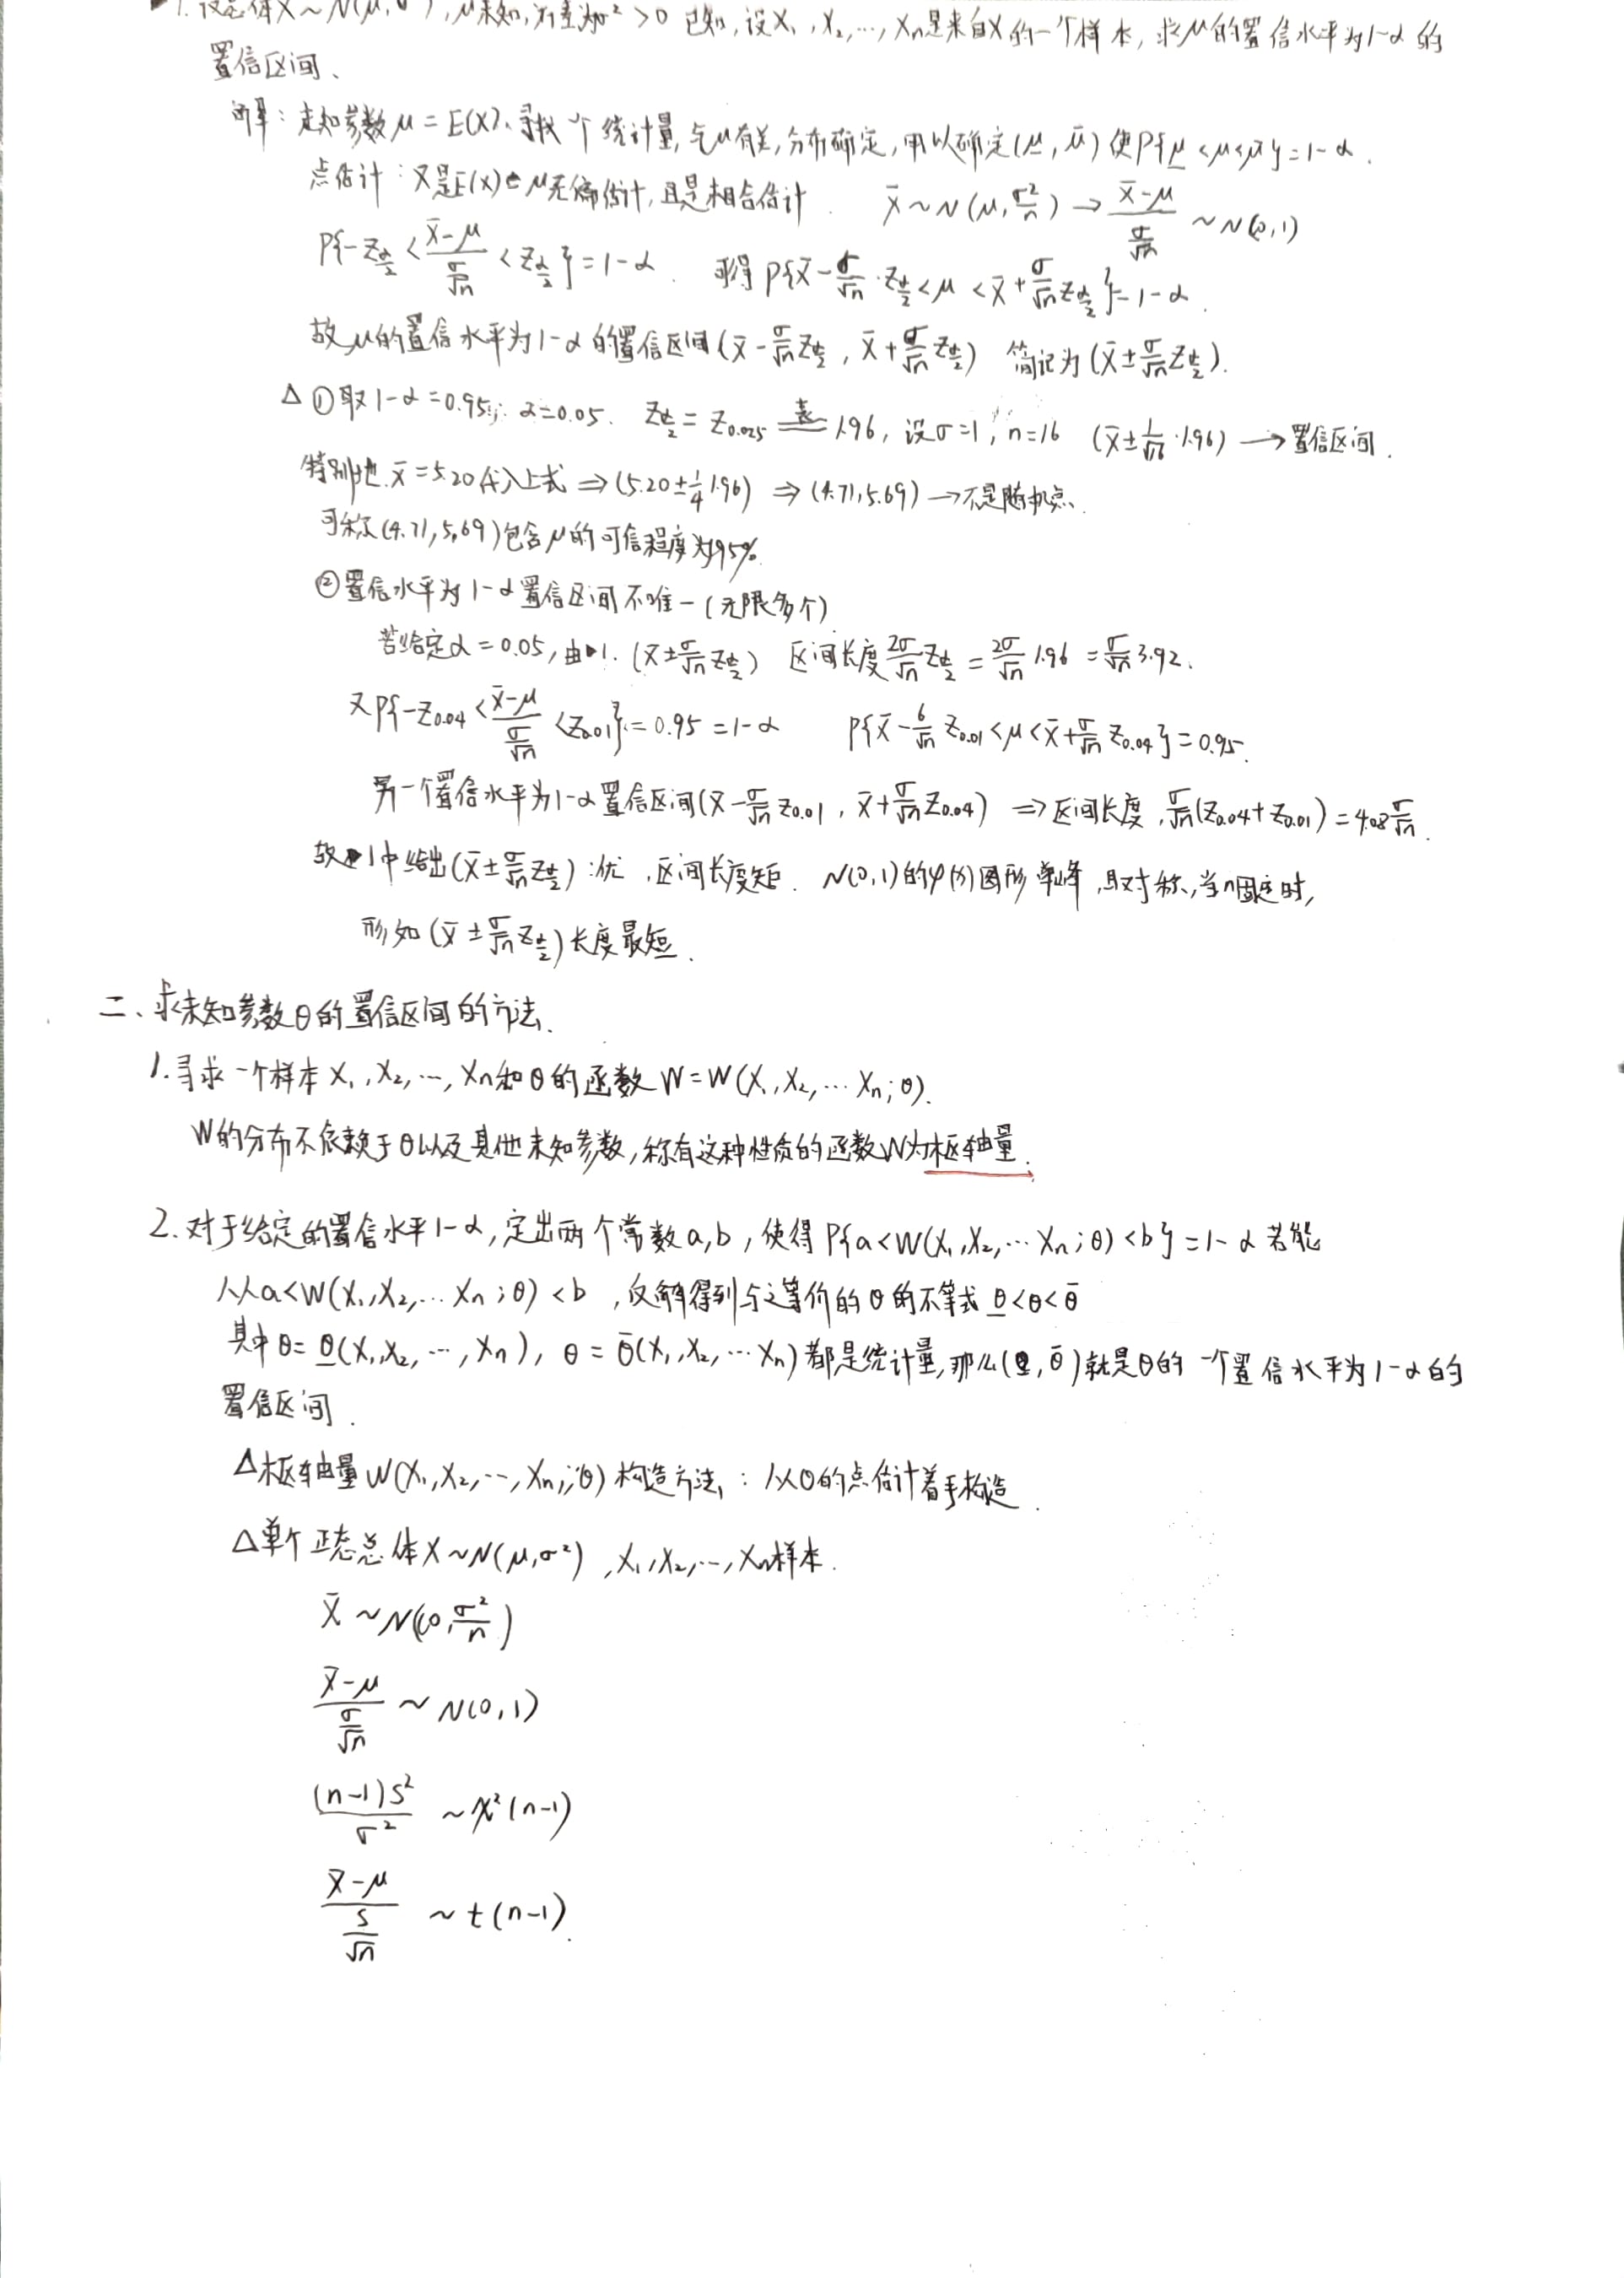 1. 设总体X~N(μ,σ²),μ未知,方差为σ²>0 已知,设X₁,X₂,…,Xn是来自X的一个样本,求μ的置信水平为1-α的
置信区间、
解:未知参数μ=E(X).寻找一个统计量,与μ有关,分布确定,用以确定(μ̲,μ̄)使P{μ̲<μ<μ̄}=1-α.
点估计:X̄是E(X)=μ无偏估计,且是相合估计. X̄~N(μ,σ²/n)→(X̄-μ)/(σ/√n)~N(0,1)
P{-z_{α/2}<(X̄-μ)/(σ/√n)<z_{α/2}}=1-α. 可得P{X̄-σ/√n·z_{α/2}<μ<X̄+σ/√n z_{α/2}}=1-α.
故μ的置信水平为1-α的置信区间(X̄-σ/√n z_{α/2},X̄+σ/√n z_{α/2}) 简记为(X̄±σ/√n z_{α/2}).
△①取1-α=0.95; α=0.05. z_{α/2}=z_{0.025} 查= 1.96, 设σ=1, n=16 (X̄±1/√16·1.96)→置信区间.
特别地.x̄=5.20代入上式⇒(5.20±1/4 1.96)⇒(4.71,5.69)→不是随机点.
可称(4.71,5.69)包含μ的可信程度为95%.
②置信水平为1-α置信区间不唯一(无限多个)
若给定α=0.05,由1.(X̄±σ/√n z_{α/2}) 区间长度2σ/√n z_{α/2}=2σ/√n 1.96=σ/√n 3.92.
又P{-z_{0.04}<(X̄-μ)/(σ/√n)<z_{0.01}}=0.95=1-α P{X̄-σ/√n z_{0.01}<μ<X̄+σ/√n z_{0.04}}=0.95.
另一个置信水平为1-α置信区间(X̄-σ/√n z_{0.01},X̄+σ/√n z_{0.04})⇒区间长度,σ/√n(z_{0.04}+z_{0.01})=4.08σ/√n.
故1中给出(X̄±σ/√n z_{α/2}):优,区间长度短. N(0,1)的φ(x)图形单峰,且对称,当n固定时,
形如(X̄±σ/√n z_{α/2})长度最短.
二、求未知参数θ的置信区间的方法.
1.寻求一个样本X₁,X₂,…,Xn和θ的函数W=W(X₁,X₂,…Xn;θ).
W的分布不依赖于θ以及其他未知参数,称有这种性质的函数W为枢轴量.
2.对于给定的置信水平1-α,定出两个常数a,b,使得P{a<W(X₁,X₂,…Xn;θ)<b}=1-α若能
从a<W(X₁,X₂,…Xn;θ)<b,反解得到与之等价的θ的不等式θ̲<θ<θ̄
其中θ=θ̲(X₁,X₂,…,Xn), θ=θ̄(X₁,X₂,…Xn)都是统计量,那么(θ̲,θ̄)就是θ的一个置信水平为1-α的
置信区间.
△枢轴量W(X₁,X₂,…,Xn;θ)构造方法:从θ的点估计着手构造.
△单个正态总体X~N(μ,σ²),X₁,X₂,…,Xn样本.
X̄~N(0,σ²/n)
(X̄-μ)/(σ/√n)~N(0,1)
(n-1)S²/σ²~χ²(n-1)
(X̄-μ)/(S/√n)~t(n-1).